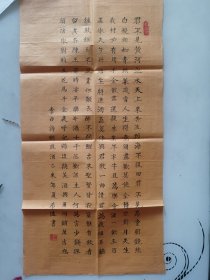 君不見黃河之水天上來奔流到海不復回君不見高堂明鏡悲
白髮朝如青絲暮成雪人生得意須盡歡莫使金樽空對月天生
我材必有用千金散盡還復來烹羊宰牛且為樂會須一飲三百
杯岑夫子丹丘生將進酒杯莫停與君歌一曲請君為我傾耳聽
鐘鼓饌玉不足貴但願長醉不願醒古來聖賢皆寂寞惟有飲者
留其名陳王昔時宴平樂斗酒十千恣歡謔主人何為言少錢徑
須沽取對君酌五花馬千金裘呼兒將出換美酒與爾同銷萬古愁
李白詩將進酒乙未年夏書